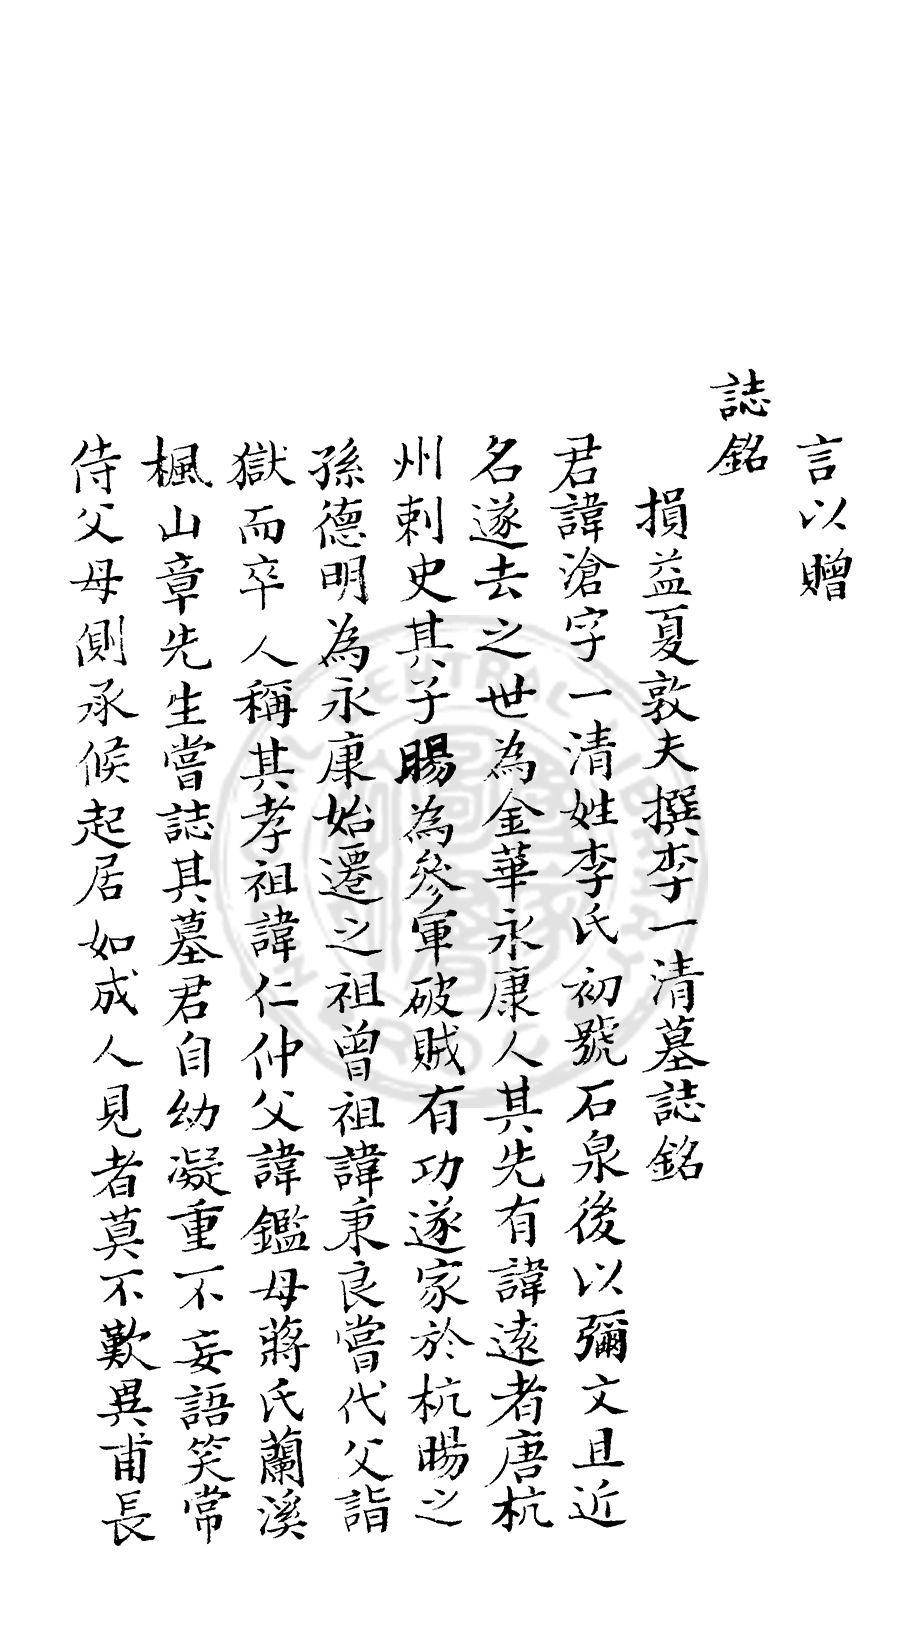 言以贈
誌銘
損益夏敦夫撰李一清墓誌銘
君諱滄字一清姓李氏初號石泉後以彌文且近
名遂去之世為金華永康人其先有諱遠者唐杭
州刺史其子暘為參軍破賊有功遂家於杭暘之
孫德明為永康始遷之祖曾祖諱秉良嘗代父詣
獄而卒人稱其孝祖諱仁仲父諱鑑母蔣氏蘭溪
楓山章先生嘗誌其墓君自幼凝重不妄語笑常
侍父母側承候起居如成人見者莫不歎異甫長